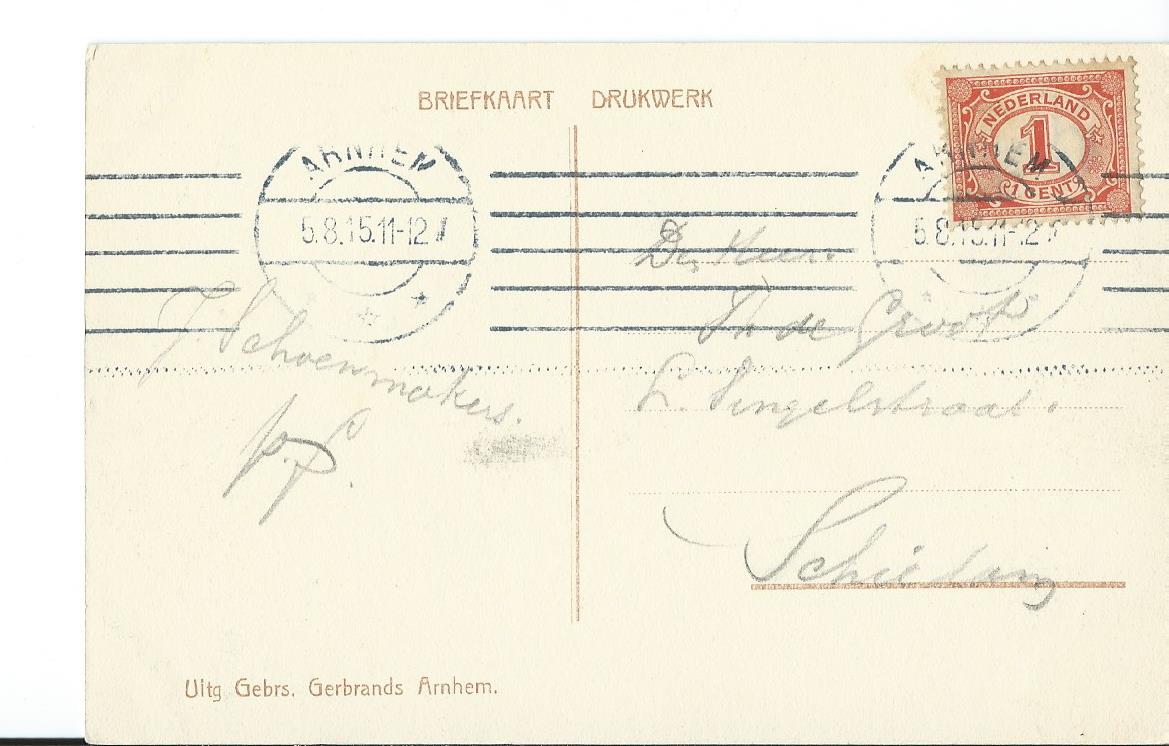 BRIEFKAART DRUKWERK
NEDERLAND
1
1 CENT
ARNHEM
5.8.15.11-12
ARNHEM
5.8.15.11-12
J. Schoenmakers.
p.f.
Heer
Th de Groot
L. Singelstraat.
Schiedam
Uitg Gebrs. Gerbrands Arnhem.